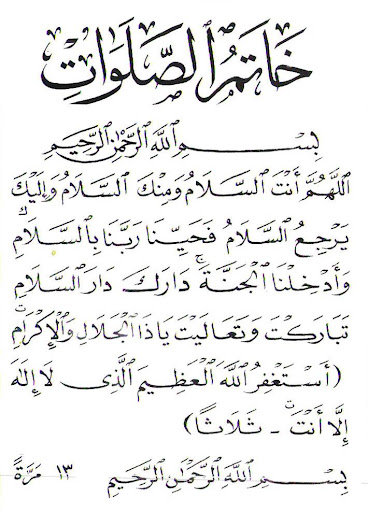 خَاتَمُ ٱلصَّلَوَاتِ
بِسْمِ ٱللَّهِ ٱلرَّحْمٰنِ ٱلرَّحِيمِ
اَللَّهُمَّ أَنْتَ ٱلسَّلَامُ وَمِنْكَ ٱلسَّلَامُ وَإِلَيْكَ
يَرْجِعُ ٱلسَّلَامُ فَحَيِّنَا رَبَّنَا بِٱلسَّلَامِ
وَأَدْخِلْنَا ٱلْجَنَّةَ دَارَكَ دَارَ ٱلسَّلَامِ
تَبَارَكْتَ وَتَعَالَيْتَ يَاذَا ٱلْجَلَالِ وَٱلْإِكْرَامِ
(أَسْتَغْفِرُ ٱللَّهَ ٱلْعَظِيمَ ٱلَّذِى لَا إِلَهَ
إِلَّا أَنْتَ - ثَلَاثًا)
بِسْمِ ٱللَّهِ ٱلرَّحْمٰنِ ٱلرَّحِيمِ ١٣ مَرَّةً